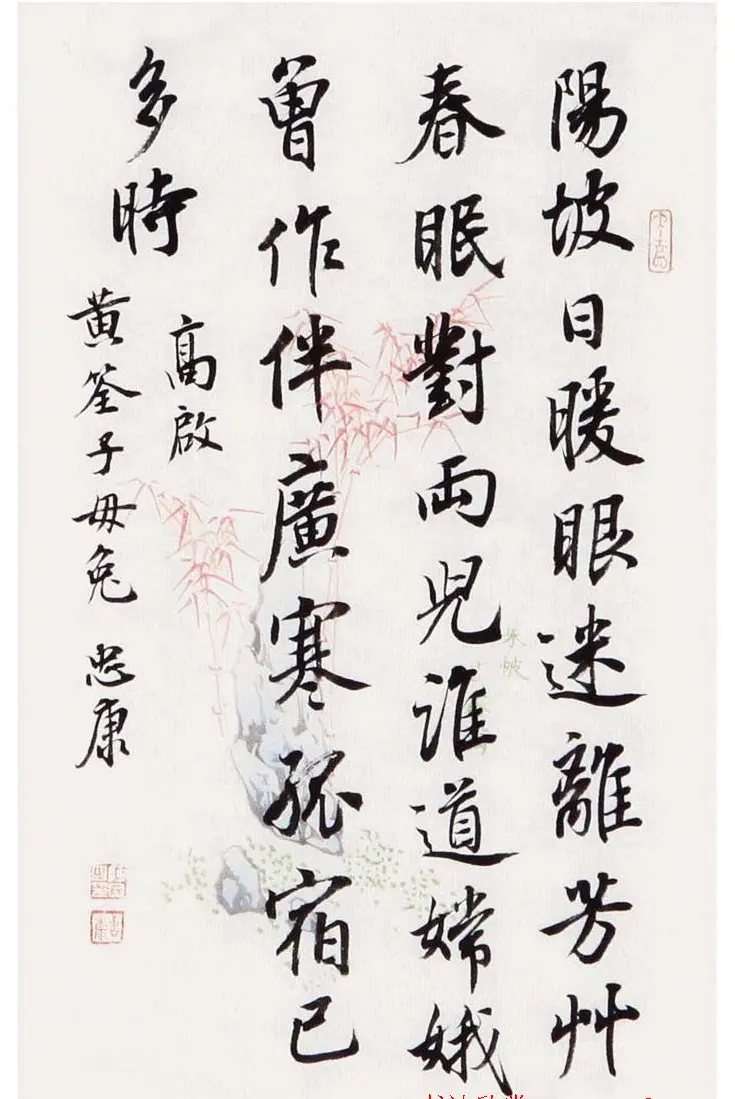 陽坡日暖眼迷離芳艸
春眠對兩兒誰道嫦娥
曾作伴廣寒孤宿已
多時
高啟
黃筌子母兔 忠康